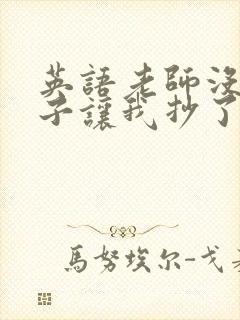 英語老師沒
子讓我抄了
馬努埃尔-戈